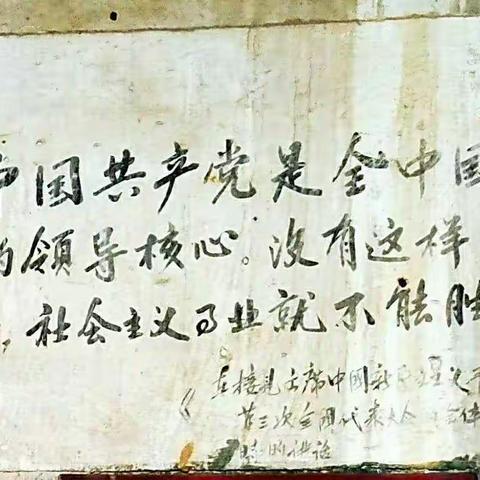 中国共产党是全中国
的领导核心。没有这样
，社会主义事业就不能胜
《在接见出席中國新民主主义
第三次全国代表大会全体
时的讲话